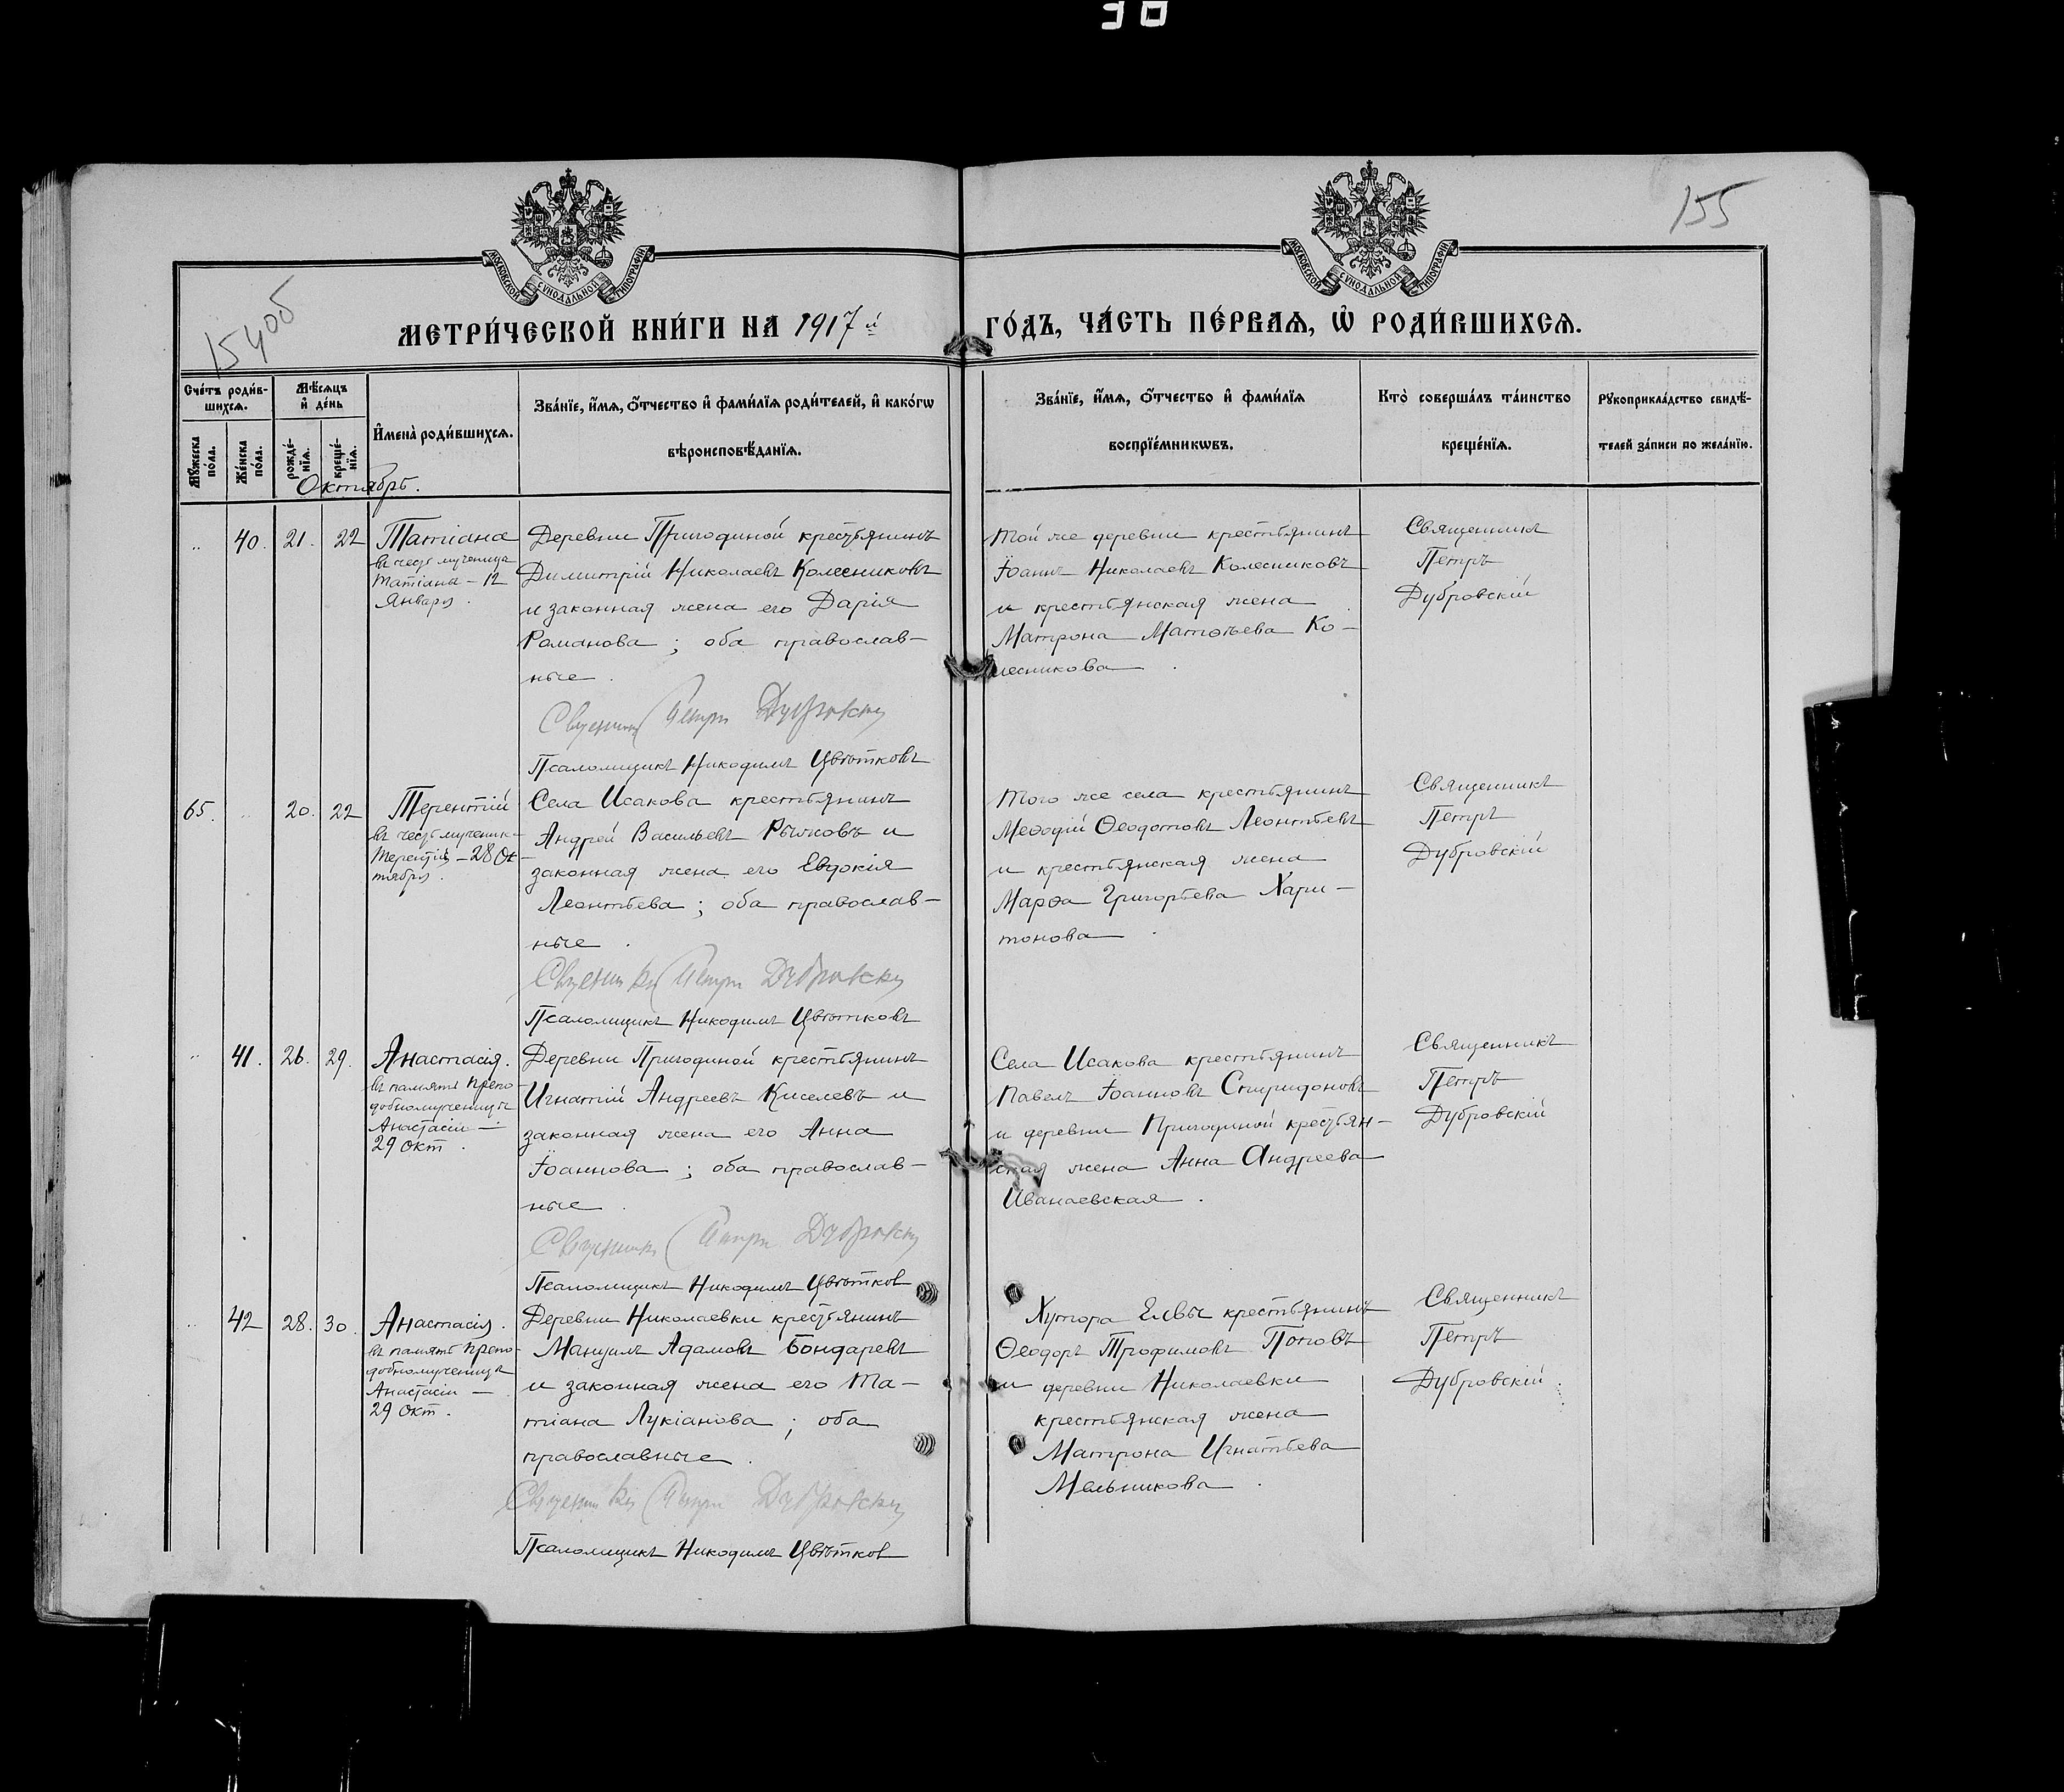 30
155
15400б
МОСКОВСКОЙ СѴНОДАЛЬНОЙ ТИПОГРАФІИ
МОСКОВСКОЙ СѴНОДАЛЬНОЙ ТИПОГРАФІИ
МЕТРИ́ЧЕСКОЙ КНИ́ГИ НА 1917й ГО́ДЪ, ЧА́СТЬ ПЕ́РВАѦ, Ѡ҆ РОДИ́ВШИХСѦ.
Сче́тъ роди́в-
шихсѧ.
Мѣ́сѧцъ
и҆ де́нь
И҆мена̀ роди́вшихсѧ.
Зва́нїе, и҆́мѧ, ѻ҆́тчество и҆ фами́лїѧ роди́телей, и҆ како́гѡ
вѣроисповѣ́данїѧ.
Зва́нїе, и҆́мѧ, ѻ҆́тчество и҆ фами́лїѧ
воспрїе́мникѡвъ.
Кто̀ соверша́лъ та́инство
креще́нїѧ.
Рꙋкоприкла́дство свидѣ́-
телей за́писи по жела́нїю.
Мꙋ́жеска
по́ла.
Же́нска
по́ла.
рожде́-
нїѧ.
креще́-
нїѧ.
Октябрь.
„ 40. 21. 22
Татіана
въ честь мученица
Татіана – 12
Января.
Деревни Пригодиной крестьянинъ
Димитрій Николаевъ Колесниковъ
и законная жена его Дарія
Романова; оба православ-
ные.
Священникъ Петръ Дубровскій
Псаломщикъ Никодимъ Цвѣтковъ
Той же деревни крестьянинъ
Іоаннъ Николаевъ Колесниковъ
и крестьянская жена
Матрона Матѳѣева Ко-
лесникова.
Священникъ
Петръ
Дубровскій
65. „ 20. 22
Терентій
въ честь мученик-
Терентія – 28 Ок-
тября.
Села Исакова крестьянинъ
Андрей Васильевъ Рыжовъ и
законная жена его Евдокія
Леонтьева; оба православ-
ные.
Священникъ Петръ Дубровскій
Псаломщикъ Никодимъ Цвѣтковъ
Того же села крестьянинъ
Меѳодій Ѳеодотовъ Леонтьевъ
и крестьянская жена
Марѳа Григорьева Хари-
тонова.
Священникъ
Петръ
Дубровскій
„ 41. 26. 29.
Анастасія.
въ память препо-
добномученицы
Анастасіи –
29 Окт.
Деревни Пригодиной крестьянинъ
Игнатій Андреевъ Киселевъ и
законная жена его Анна
Іоаннова; оба православ-
ные.
Священникъ Петръ Дубровскій
Псаломщикъ Никодимъ Цвѣтков
Села Исакова крестьянинъ
Павелъ Іоанновъ Спиридоновъ
и деревни Пригодиной крестьян-
ская жена Анна Андреева
Иванаевская.
Священникъ
Петръ
Дубровскій
„ 42 28. 30.
Анастасія.
въ память препо-
добномученицы
Анастасіи –
29 Окт.
Деревни Николаевки крестьянинъ
Адамовъ Бондаревъ
и законная жена его Та-
тіана Лукіанова; оба
православные.
Священникъ Петръ Дубровскій
Псаломщикъ Никодимъ Цвѣтков
Хутора крестьянинъ
Ѳеодоръ Трофимовъ Поповъ
и деревни Николаевки
крестьянская жена
Матрона Игнатьева
Мельникова.
Священникъ
Петръ
Дубровскій.